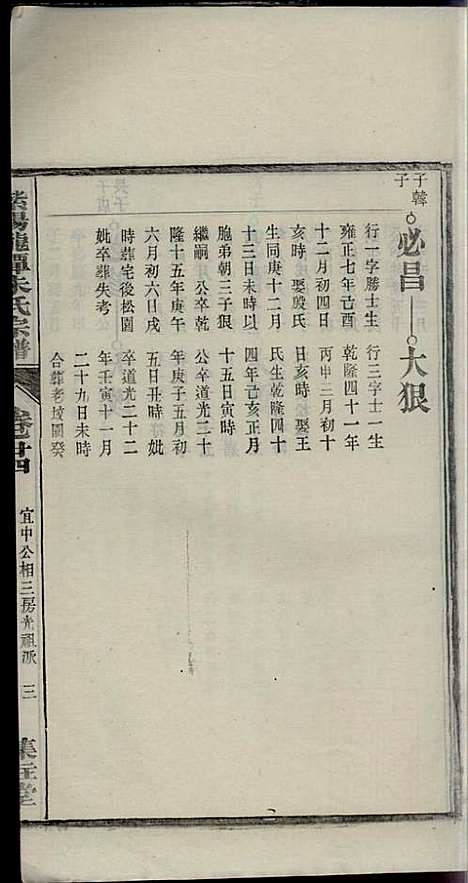 韓子
子
必昌
大狠
行一字勝士生
雍正七年己酉
十二月初四日
亥時娶殷氏
生同庚十二月
十三日未時以
胞弟朝三子狠
繼嗣公卒乾
隆十五年庚午
六月初六日戌
時葬宅後松園
妣卒葬失考
行三字士一生
乾隆四十一年
丙申三月初十
日亥時娶王
氏生乾隆四十
四年己亥正月
十五日寅時
公卒道光二十
年庚子五月初
五日丑時妣
卒道光二十二
年壬寅十一月
二十九日未時
合葬老坟園癸
紫陽龍潭朱氏宗譜
卷之十四
宜中公相三房光祖派
三
集注堂